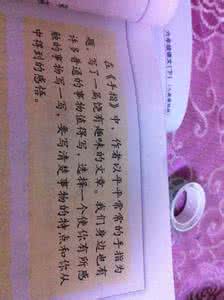 六年级语文(下)
在《手指》中，作者以平平常常的手指为
题，写了一篇饶有趣味的文章。我们身边也有
许多普通的事物值得写，选择一个使你有所感
触的事物写一写，要写清楚事物的特点和你从
中得到的感悟。